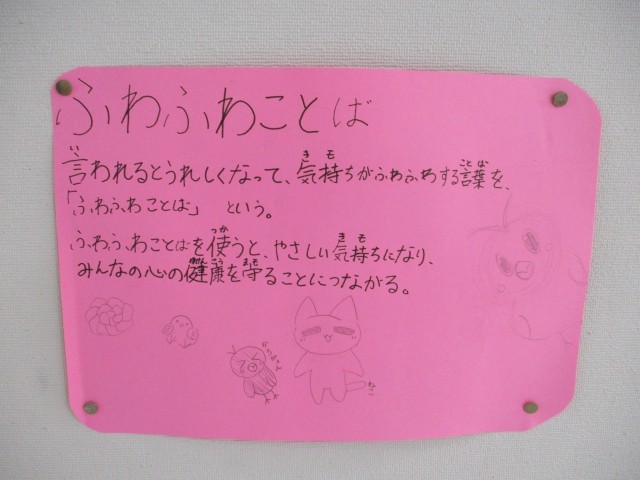 ふわふわことば
言われるとうれしくなって、気持ちがふわふわする言葉を、
「ふわふわことば」 という。
ふわふわことばを使うと、やさしい気持ちになり、
みんなの心の健康を守ることにつながる。
ねこ